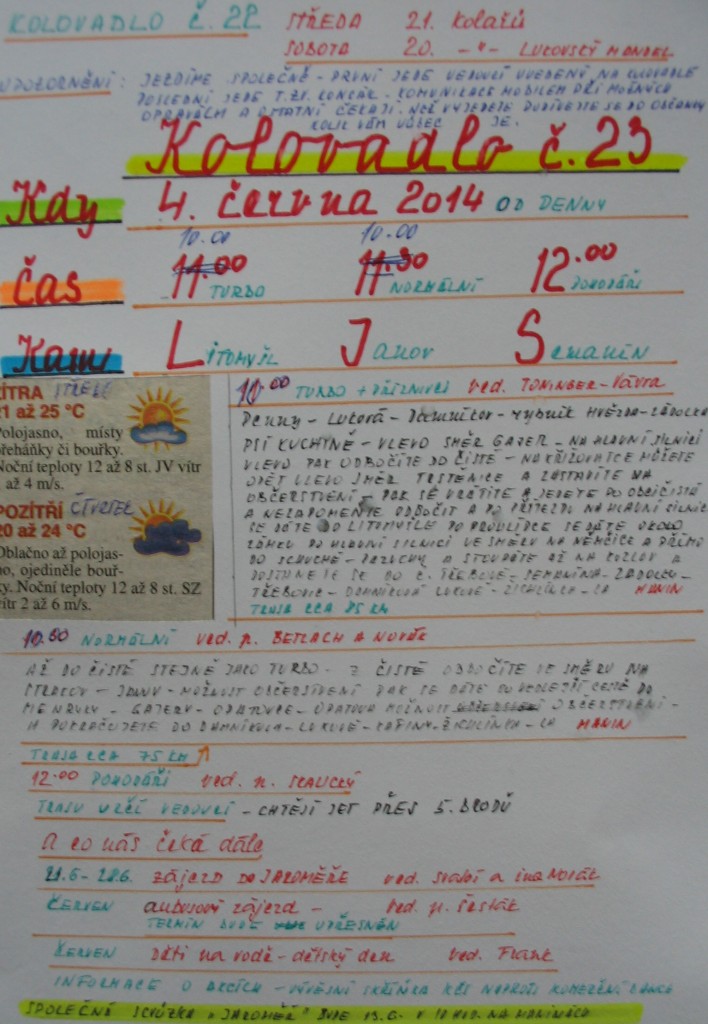 KOLOVADLO č. 22 STŘEDA 21. kolařů
SOBOTA 20. -"- LUKOVSKÝ MANDEL
UPOZORNĚNÍ: JEZDÍME SPOLEČNĚ - PRVNÍ JEDE VEDOUCÍ UVEDENÝ NA KOLOVADLE
POSLEDNÍ JEDE T.ZV. KONCÁK. KOMUNIKACE MOBILEM PŘI MOŽNÝCH
OPRAVÁCH A OSTATNÍ ČEKAJÍ. NEŽ VYJEDETE PODÍVEJTE SE DO OBČANKY
KOLIK VÁM VŮBEC JE.
Kolovadlo č. 23
Kdy 4. června 2014 OD DENNY
10.00 10.00
Čas 11.00 TURBO 11.30 NORMÁLNÍ 12.00 POHODÁŘI
Kam LITOMYŠL JANOV SEMANÍN
ZÍTRA STŘEDA
21 až 25 °C
Polojasno, místy
přeháňky či bouřky.
Noční teploty 12 až 8 st. JV vítr
až 4 m/s.
POZÍTŘÍ ČTVRTEK
20 až 24 °C
Oblačno až polojas-
no, ojediněle bouř-
ky. Noční teploty 12 až 8 st. SZ
vítr 2 až 6 m/s.
10.00 TURBO + PŘÍZNIVCI ved. TONINGER - Vávra
Penny - Luková - Damníkov - rybník HVĚZDA -
PSÍ KUCHYNĚ - VLEVO SMĚR GAJER - NA HLAVNÍ SILNICI
VLEVO PAK ODBOČÍTE DO ČISTÉ - NA KŘIŽOVATCE MŮŽETE
JET VLEVO SMĚR TRSTENICE A ZASTAVÍTE NA
OBČERSTVENÍ - PAK SE VRÁTÍTE A JEDETE PO
A NEZAPOMENTE ODBOČIT A PO PŘÍJEZDU NA HLAVNÍ SILNICI
SE DÁTE DO LITOMYŠLE PO PROHLÍDCE SE DÁTE OKOLO
ZÁMKU PO HLAVNÍ SILNICI VE SMĚRU NA NĚMČICE A PŘÍMO
DO - A STOUPÁTE AŽ NA KOZLOV A
DOSTANETE SE DO Č. TŘEBOVÉ - SEMANÍNA -
TŘEBOVIC - DAMNÍKOVA LUKOVÉ - ŽICHLÍNKA - LA MANIN
TRASA CCA 85 KM
10.00 NORMÁLNÍ ved. p. BETLACH A NOVÁK
AŽ DO ČISTÉ STEJNĚ JAKO TURBO - Z ČISTÉ ODBOČÍTE VE SMĚRU NA
STRAKOV - JANOV - MOŽNOST OBČERSTVENÍ PAK SE DÁTE PO VEDLEJŠÍ CESTĚ DO
MENDRYKU - GAJERU - OPATOVCE - OPATOVA MOŽNOST OBČERSTVENÍ -
A POKRAČUJETE DO DAMNÍKOVA - LUKOVÉ - - ŽICHLÍNKA - LA MANIN
TRASA CCA 75 KM
12.00 POHODÁŘI ved. p. SKALICKÝ
TRASU URČÍ VEDOUCÍ - CHTĚJÍ JET PŘES 5. BRODŮ
A co nás čeká dále
21.6 - 28.6. zájezd do JAROMĚŘE ved. Svatoň a ina Novák
ČERVEN autobusový zájezd - ved. p. Šesták
TERMÍN BUDE UPŘESNĚN
ČERVEN Děti na vodě - dětský den ved. Frank
INFORMACE O AKCÍCH - VÝVĚSNÍ SKŘÍŇKA KČT NAPROTI KOMERČNÍ BANCE
SPOLEČNÁ SCHŮZKA "JAROMĚŘ" BUDE 13.6. V 18 HOD. NA MANINÁCH